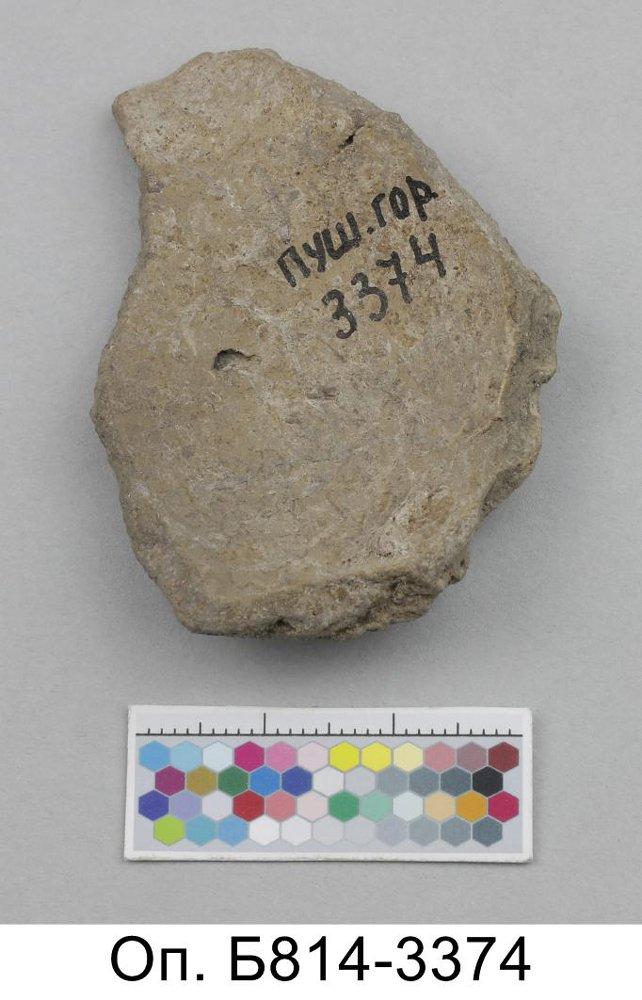 пуш.гор
3374
Оп. Б814-3374